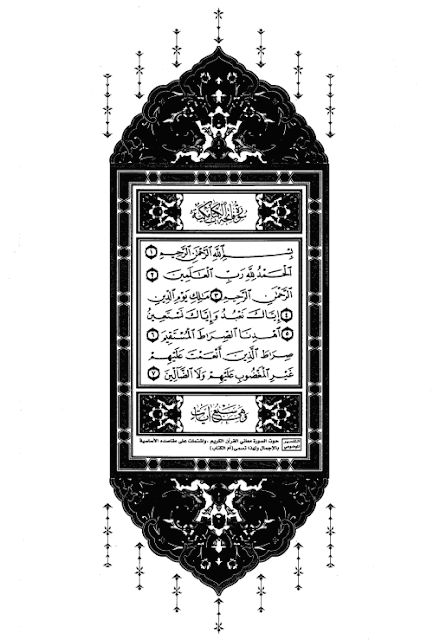 سورة الفاتحة مكية
بِسْمِ ٱللَّهِ ٱلرَّحْمَٰنِ ٱلرَّحِيمِ ١
ٱلْحَمْدُ لِلَّهِ رَبِّ ٱلْعَٰلَمِينَ ٢
ٱلرَّحْمَٰنِ ٱلرَّحِيمِ ٣ مَٰلِكِ يَوْمِ ٱلدِّينِ
٤ إِيَّاكَ نَعْبُدُ وَإِيَّاكَ نَسْتَعِينُ
٥ ٱهْدِنَا ٱلصِّرَٰطَ ٱلْمُسْتَقِيمَ ٦
صِرَٰطَ ٱلَّذِينَ أَنْعَمْتَ عَلَيْهِمْ
غَيْرِ ٱلْمَغْضُوبِ عَلَيْهِمْ وَلَا ٱلضَّآلِّينَ ٧
وهي سبع آيات
التفسير الموضوعي
حوت السورة معاني القرآن الكريم ، واشتملت على مقاصده الأساسية
بالإجمال ولهذا تسمى (أم الكتاب)